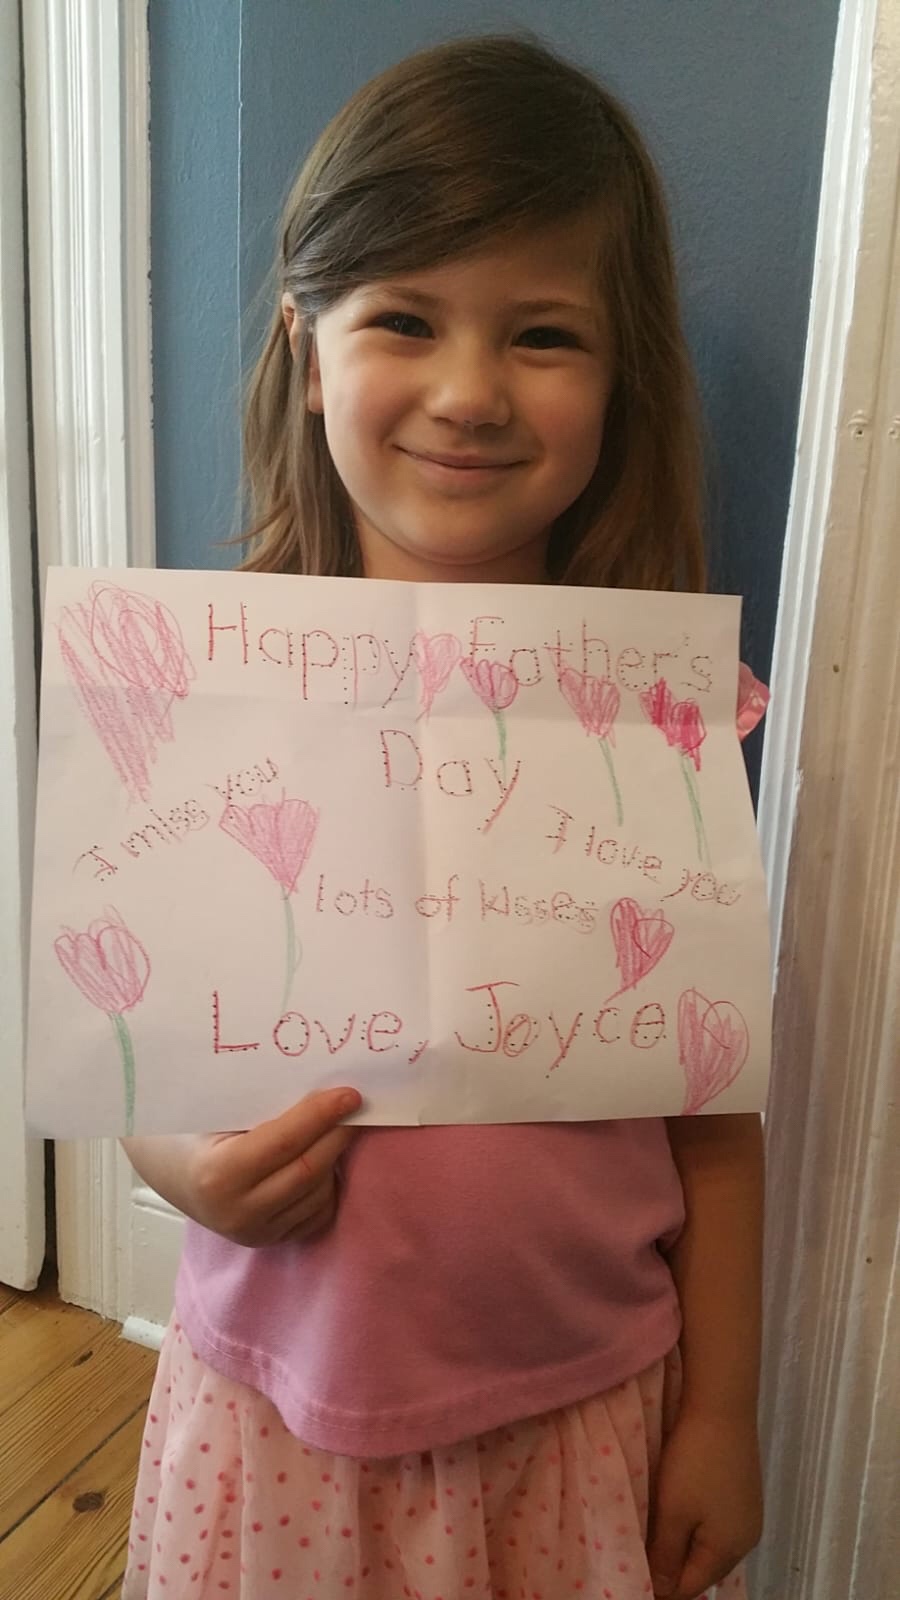 Happy Father's
Day
I miss you
I love you
lots of kisses
Love, Joyce